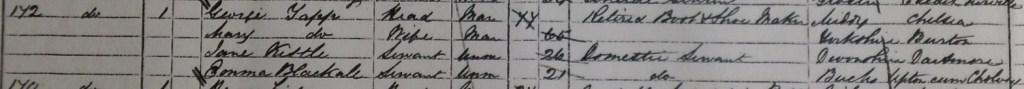 172 do 1 George Tapp Head Mar Retired Boot & Shoe Maker Middx Chelsea
Mary do Wife Mar 66 Yorkshire Burton
Jane Kistle Servant Unm 26 Domestic Servant Devonshire Dartmore
Emma Blackale Servant Unm 21 do Bucks Upton cum Chalvey